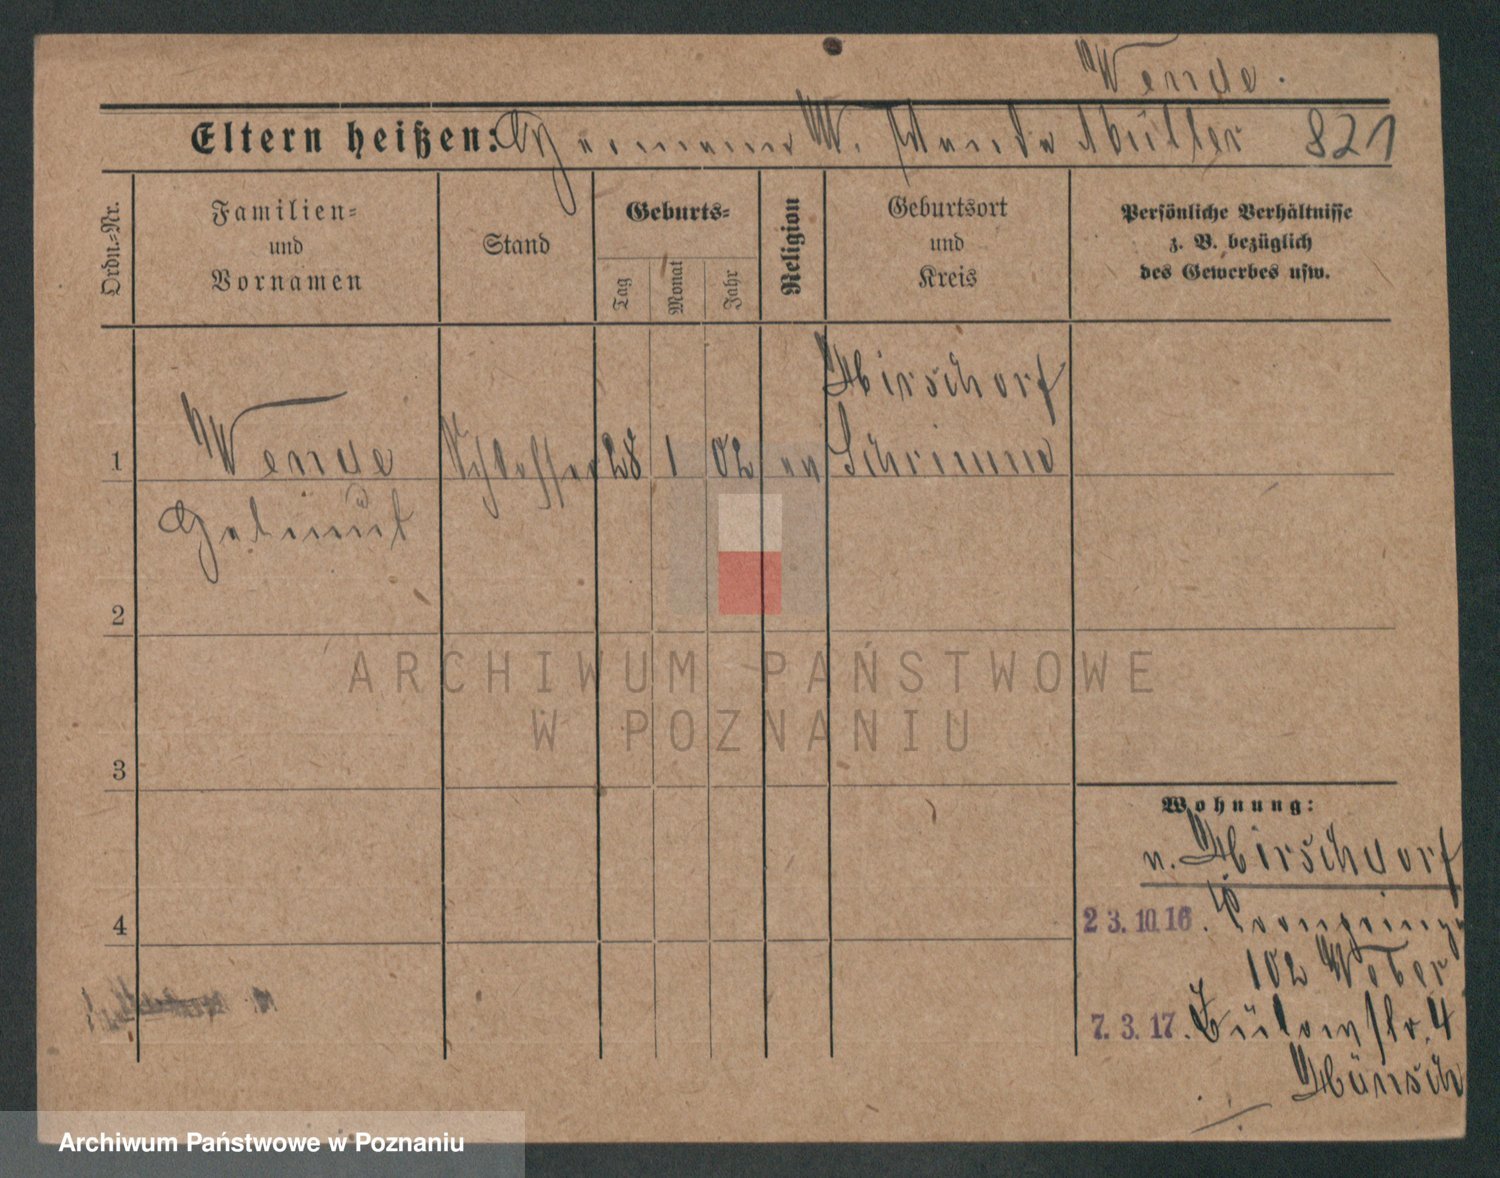 Wende.
Eltern heißen: Hermann W. Wanda Müller 821
Ordn.-Nr.
Familien-
und
Vornamen
Stand
Geburts-
Tag
Monat
Jahr
Religion
Geburtsort
und
Kreis
Persönliche Verhältnisse
z. B. bezüglich
des Gewerbes usw.
Hirschdorf
1 Wende Schlosser 28 1 02 ev Schrimm
Helmut
2
3
4
ARCHIWUM PAŃSTWOWE
W POZNANIU
Wohnung:
n. Hirschdorf
23.10.16. Kronprinz
102 Weber
7.3.17. Bülowstr. 4
Hänsch
Archiwum Państwowe w Poznaniu